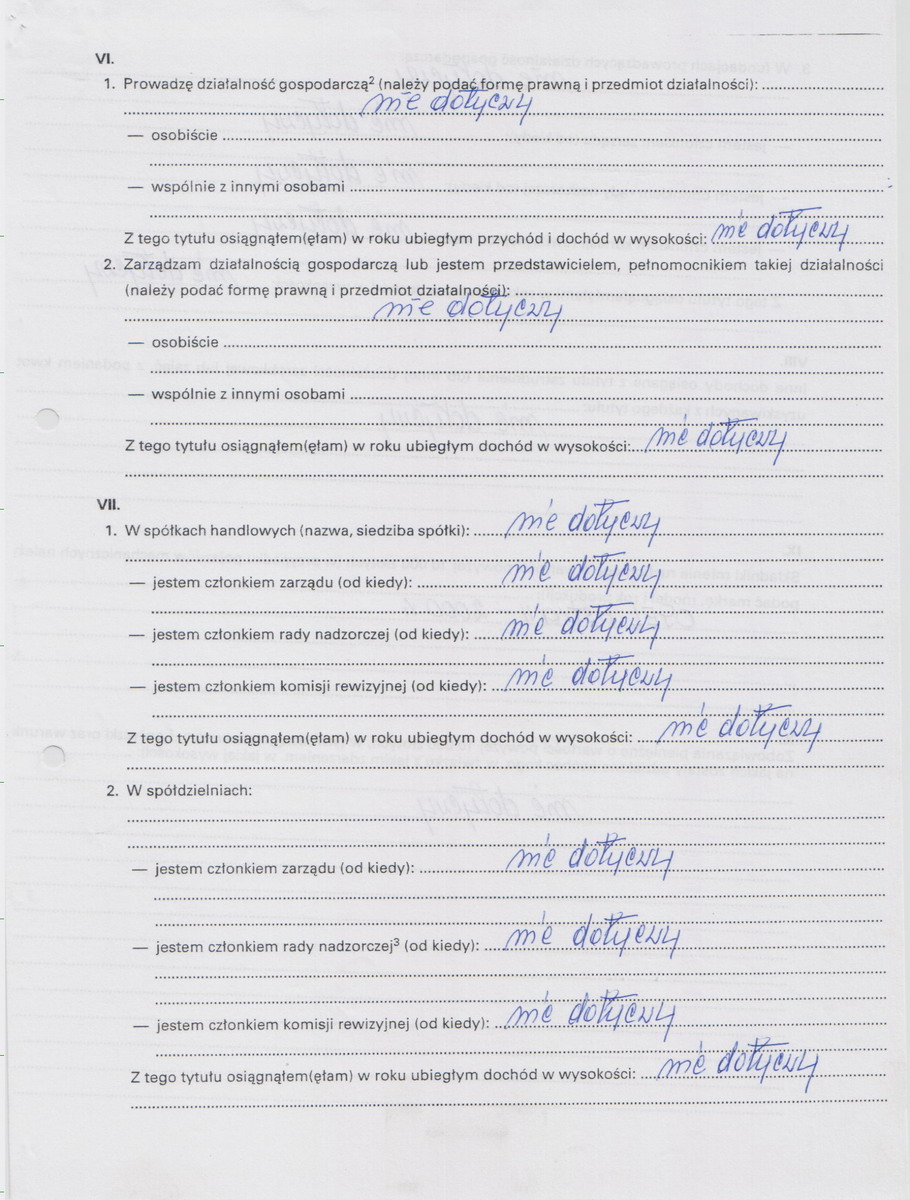 VI.
1. Prowadzę działalność gospodarczą² (należy podać formę prawną i przedmiot działalności): ....................
nie dotyczy
— osobiście ....................
— wspólnie z innymi osobami ....................
Z tego tytułu osiągnąłem(ęłam) w roku ubiegłym przychód i dochód w wysokości: nie dotyczy
2. Zarządzam działalnością gospodarczą lub jestem przedstawicielem, pełnomocnikiem takiej działalności
(należy podać formę prawną i przedmiot działalności): ....................
nie dotyczy
— osobiście ....................
— wspólnie z innymi osobami ....................
Z tego tytułu osiągnąłem(ęłam) w roku ubiegłym dochód w wysokości: nie dotyczy
VII.
1. W spółkach handlowych (nazwa, siedziba spółki): nie dotyczy
— jestem członkiem zarządu (od kiedy): nie dotyczy
— jestem członkiem rady nadzorczej (od kiedy): nie dotyczy
— jestem członkiem komisji rewizyjnej (od kiedy): nie dotyczy
Z tego tytułu osiągnąłem(ęłam) w roku ubiegłym dochód w wysokości: nie dotyczy
2. W spółdzielniach:
— jestem członkiem zarządu (od kiedy): nie dotyczy
— jestem członkiem rady nadzorczej³ (od kiedy): nie dotyczy
— jestem członkiem komisji rewizyjnej (od kiedy): nie dotyczy
Z tego tytułu osiągnąłem(ęłam) w roku ubiegłym dochód w wysokości: nie dotyczy